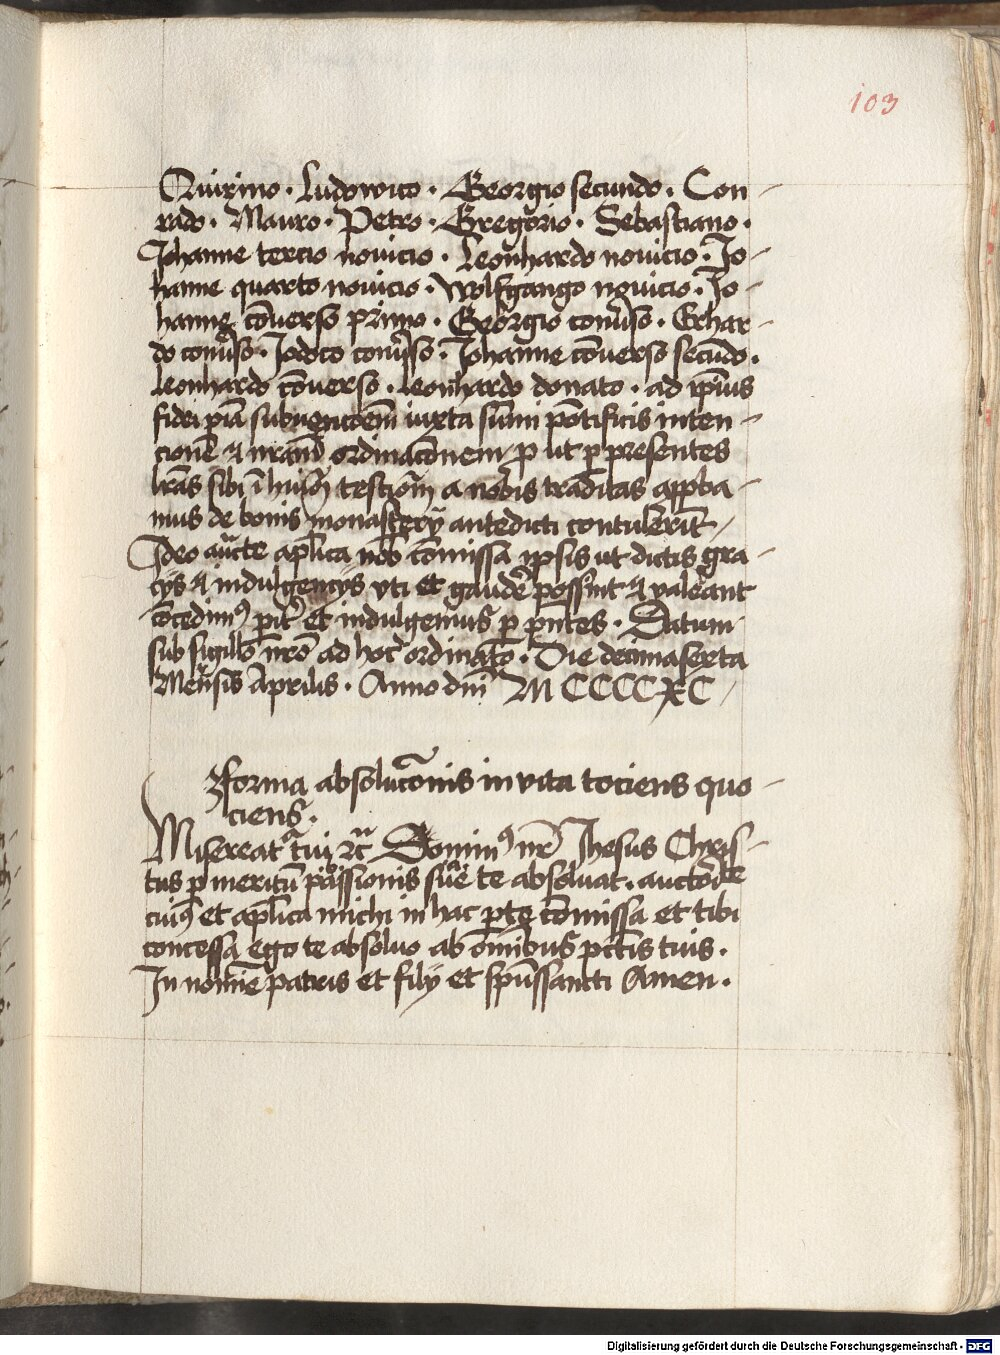 103
Quirino · Ludowico · Georgio secundo · Con-
rado · Mauro · Petro · Gregorio · Sebastiano ·
Johanne tercio novicio · Leonhardo novicio · Jo-
hanne quarto novicio · Wolfgango novicio · Jo-
hanne cōverso primo · Georgio conv̄so · Erhar-
do conv̄so · Jodoco conv̄so · Johanne cōverso secūdo ·
Leonhardo cōverso · Leonhardo donato · ad ip̄ius
fidei piā subvencōem iuxta sūmi pōtificis inten-
cionē et nrām ordinacōnem p ut p presentes
lrās sibi ī huiꝰ testiōm a nobis traditas appba-
mus de bonis monasterij antedicti contulerīt
Ideo aucte aplica nob cōmissa ipsis ut dictis gra-
cijs et indulgencijs uti et gaudē possint et valeant
cōcedimꝰ parit̄ et indulgemus p pn̄tes · Datum
sub sigillo nrō ad hoc ordinato · Die decimasexta
Mensis Aprilis · Anno dnī MCCCCXC
Forma absolucōnis in vita tociens quo-
ciens ·
Misereat tui zc̄ Dominꝰ nr̄ Jhesus Chris-
tus p meritū passionis sue te absolvat · auctōte
cuiꝰ et aplica michi in hac pte cōmissa et tibi
concessa ego te absolvo ab ōmibus pctīs tuis ·
In noīe patris et filij et spūssancti Amen ·
Digitalisierung gefördert durch die Deutsche Forschungsgemeinschaft - DFG